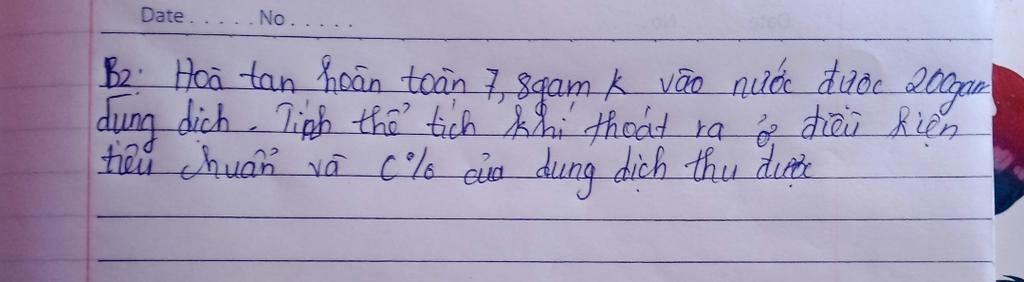 Date.....No.....
B2: Hoà tan hoàn toàn 7,8gam K vào nước được 200gam
dung dịch. Tính thể tích khí thoát ra ở điều kiện
tiêu chuẩn và C% của dung dịch thu được